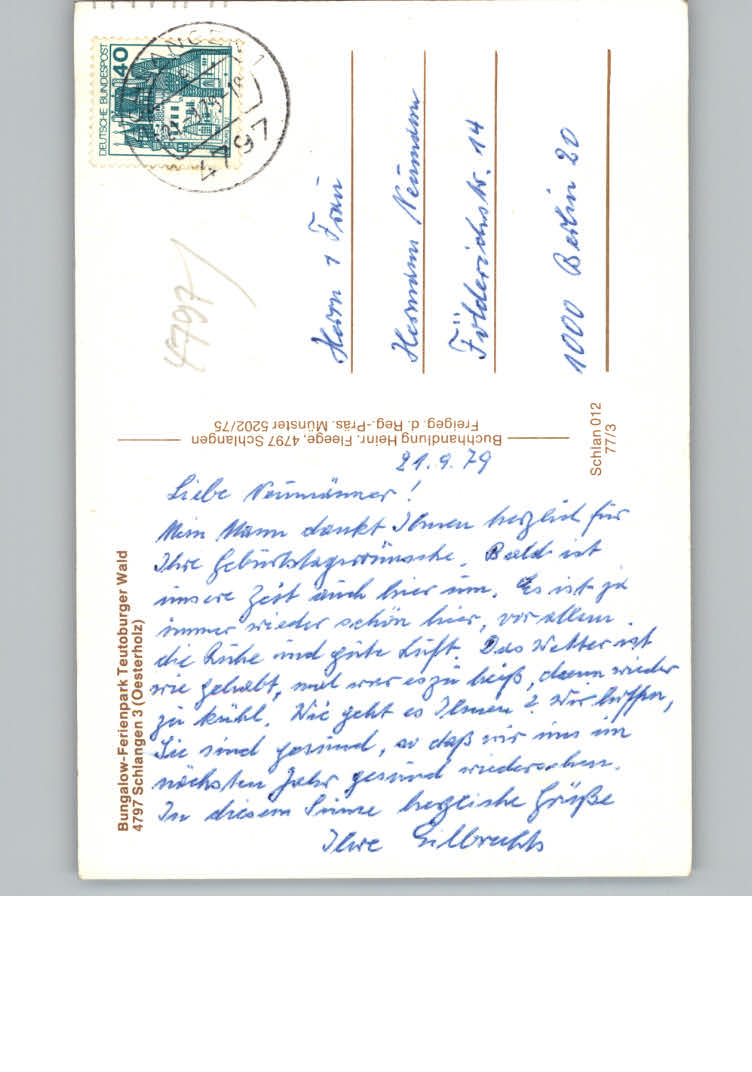 DEUTSCHE BUNDESPOST
40
4797
4797
Herrn u Frau
Hermann Neumann
Földerichstr. 14
1000 Berlin 20
Buchhandlung Heinr. Fleege, 4797 Schlangen
Freigeg. d. Reg.-Präs. Münster 5202/75
Schlan.012
77/3
Bungalow-Ferienpark Teutoburger Wald
4797 Schlangen 3 (Oesterholz)
21.9.79
Liebe Neumänner!
Mein Mann dankt Ihnen herzlich für
Ihre Geburtstagswünsche. Bald ist
unsere Zeit auch hier um. Es ist ja
immer wieder schön hier, vor allem
die Ruhe und gute Luft. Das Wetter ist
wie gehabt, mal war es zu heiß, dann wieder
zu kühl. Wie geht es Ihnen? Wir hoffen,
Sie sind gesund, so daß wir uns im
nächsten Jahr gesund wiedersehen.
In diesem Sinne herzliche Grüße
Ihre